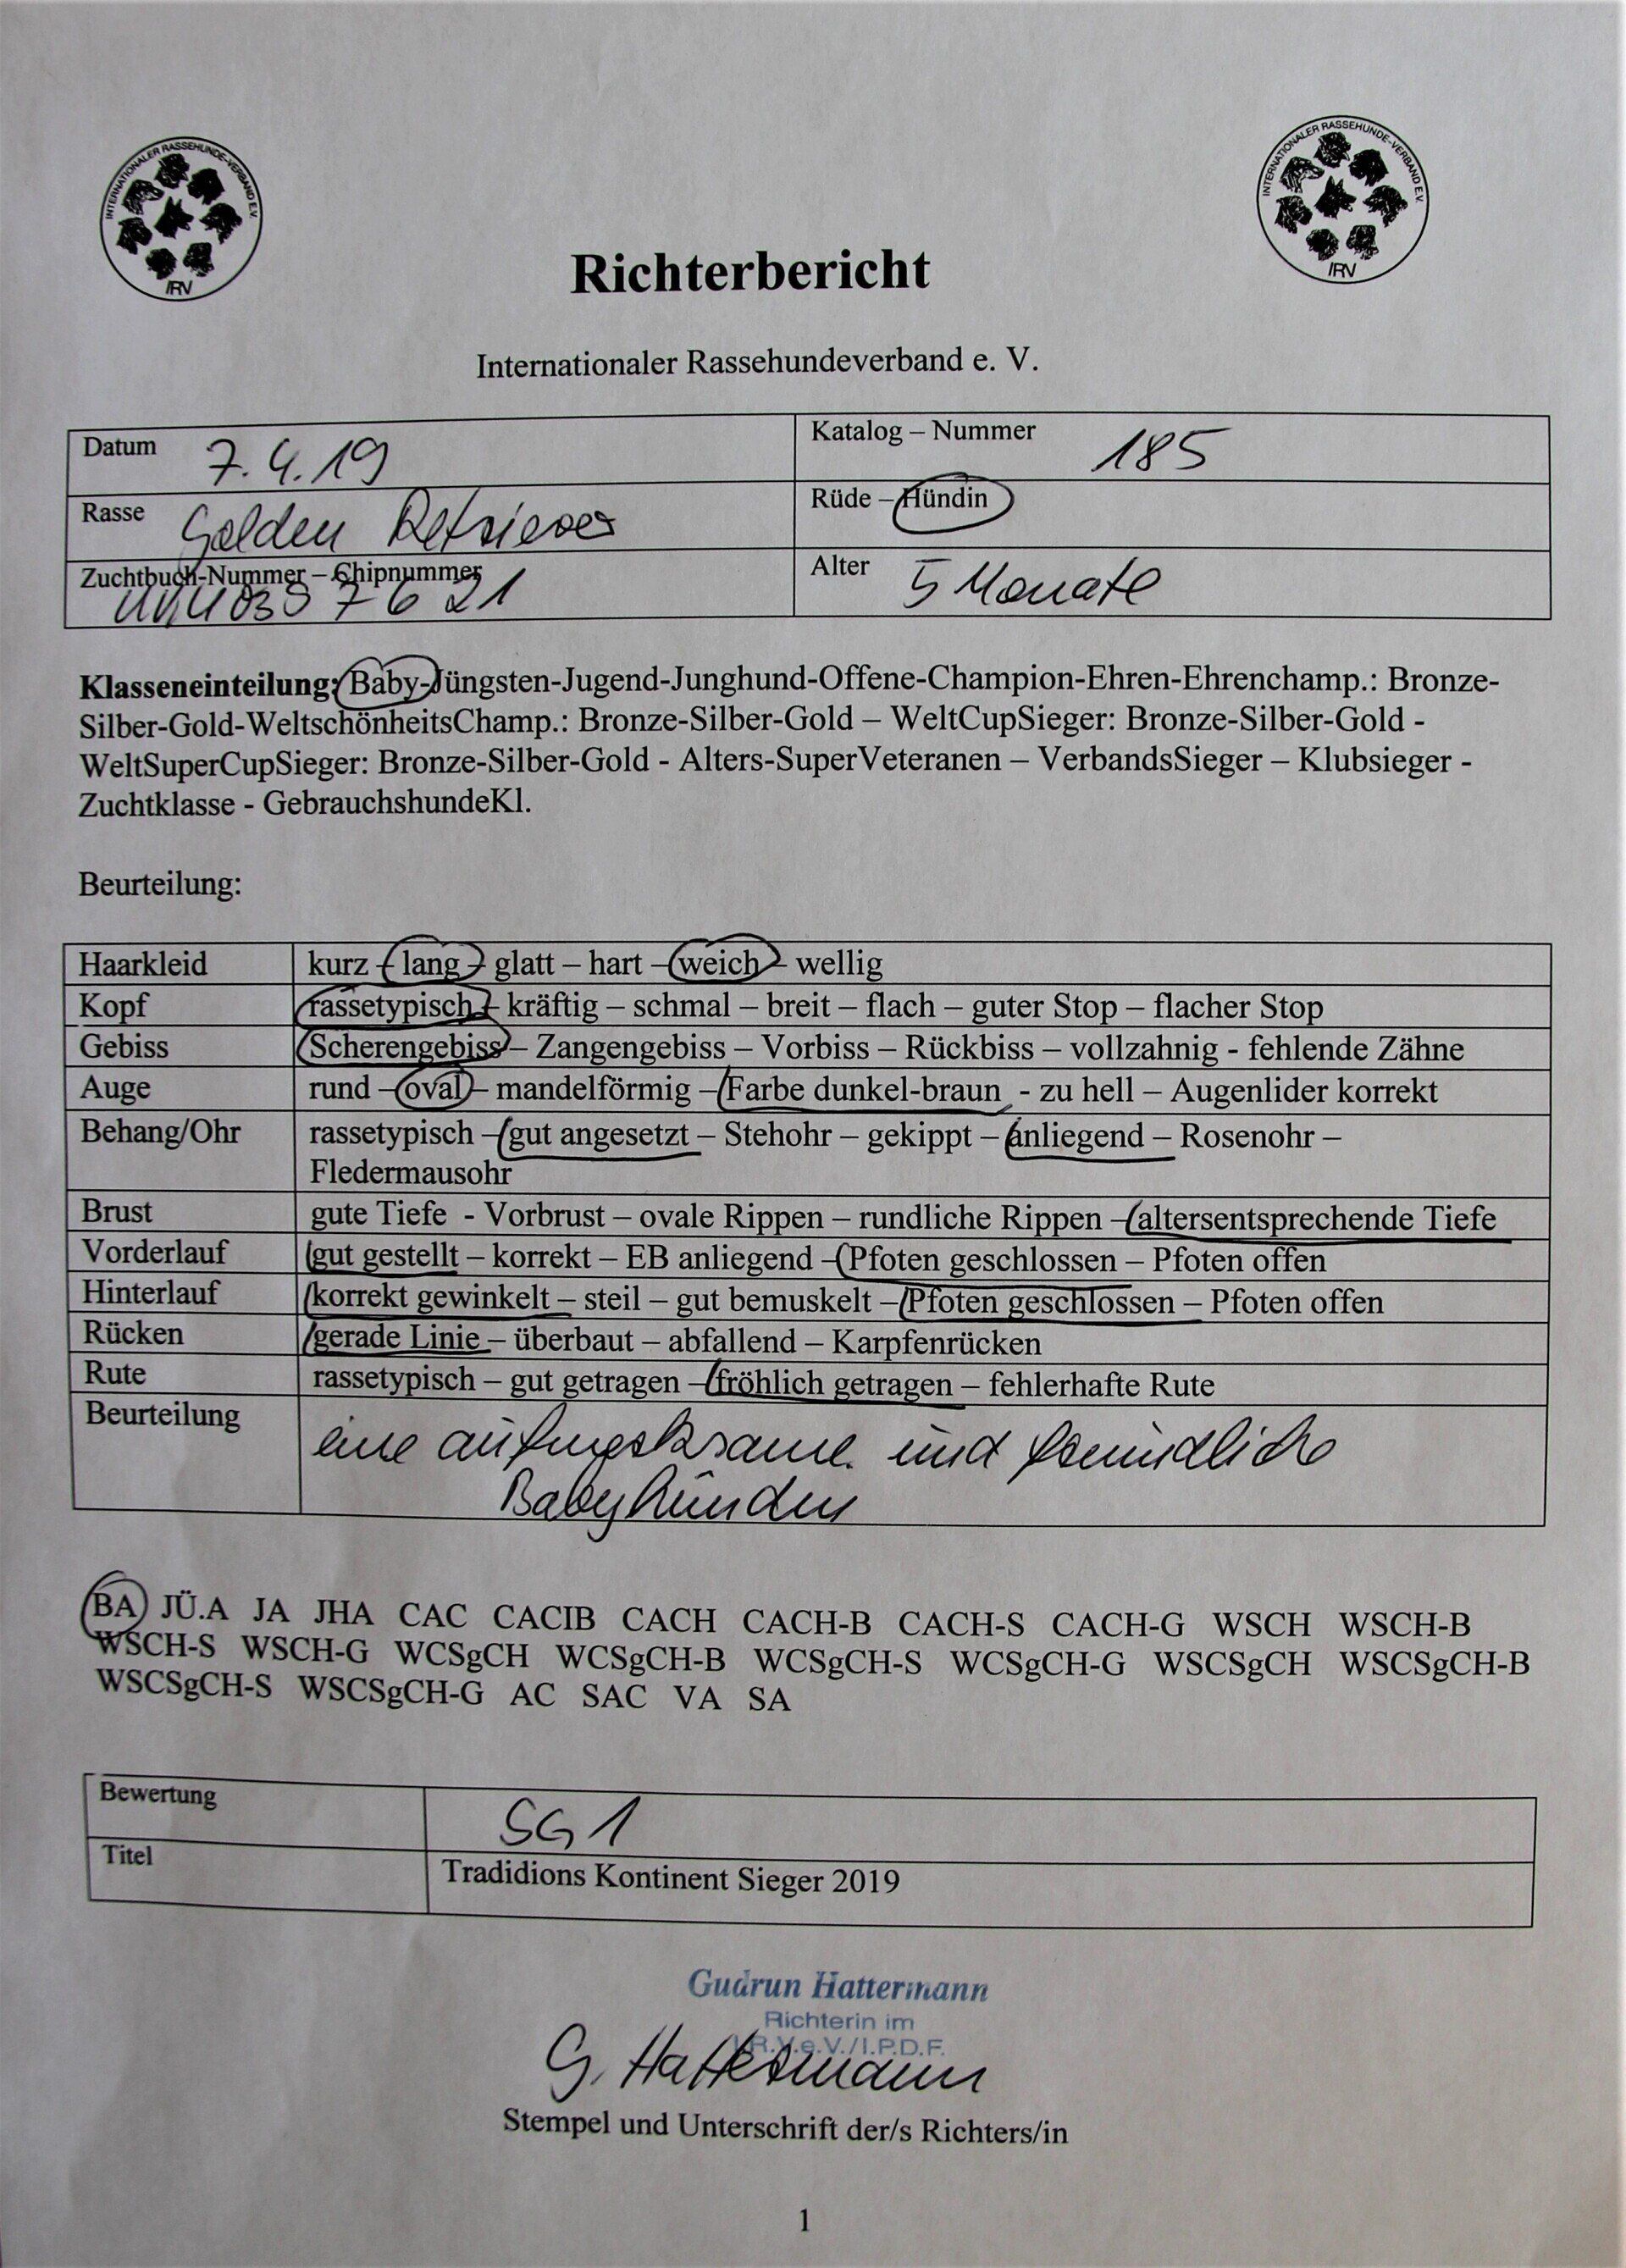 INTERNATIONALER RASSEHUNDE-VERBAND E.V.
IRV
INTERNATIONALER RASSEHUNDE-VERBAND E.V.
IRV
Richterbericht
Internationaler Rassehundeverband e. V.
Datum 7.4.19
Katalog – Nummer 185
Rasse Golden Retriever
Rüde – Hündin
Zuchtbuch-Nummer – Chipnummer
Alter 5 Monate
Klasseneinteilung: Baby-Jüngsten-Jugend-Junghund-Offene-Champion-Ehren-Ehrenchamp.: Bronze-
Silber-Gold-WeltschönheitsChamp.: Bronze-Silber-Gold – WeltCupSieger: Bronze-Silber-Gold -
WeltSuperCupSieger: Bronze-Silber-Gold - Alters-SuperVeteranen – VerbandsSieger – Klubsieger -
Zuchtklasse - GebrauchshundeKl.
Beurteilung:
Haarkleid kurz – lang – glatt – hart – weich – wellig
Kopf rassetypisch – kräftig – schmal – breit – flach – guter Stop – flacher Stop
Gebiss Scherengebiss – Zangengebiss – Vorbiss – Rückbiss – vollzahnig - fehlende Zähne
Auge rund – oval – mandelförmig – Farbe dunkel-braun - zu hell – Augenlider korrekt
Behang/Ohr rassetypisch – gut angesetzt – Stehohr – gekippt – anliegend – Rosenohr –
Fledermausohr
Brust gute Tiefe - Vorbrust – ovale Rippen – rundliche Rippen – altersentsprechende Tiefe
Vorderlauf gut gestellt – korrekt – EB anliegend – Pfoten geschlossen – Pfoten offen
Hinterlauf korrekt gewinkelt – steil – gut bemuskelt – Pfoten geschlossen – Pfoten offen
Rücken gerade Linie – überbaut – abfallend – Karpfenrücken
Rute rassetypisch – gut getragen – fröhlich getragen – fehlerhafte Rute
Beurteilung eine aufmerksame und freundliche
Babyhündin
BA JÜ.A JA JHA CAC CACIB CACH CACH-B CACH-S CACH-G WSCH WSCH-B
WSCH-S WSCH-G WCSgCH WCSgCH-B WCSgCH-S WCSgCH-G WSCSgCH WSCSgCH-B
WSCSgCH-S WSCSgCH-G AC SAC VA SA
Bewertung SG 1
Titel Tradidions Kontinent Sieger 2019
Gudrun Hattermann
Richterin im
I.R.V.e.V./I.P.D.F.
G. Hattermann
Stempel und Unterschrift der/s Richters/in
1